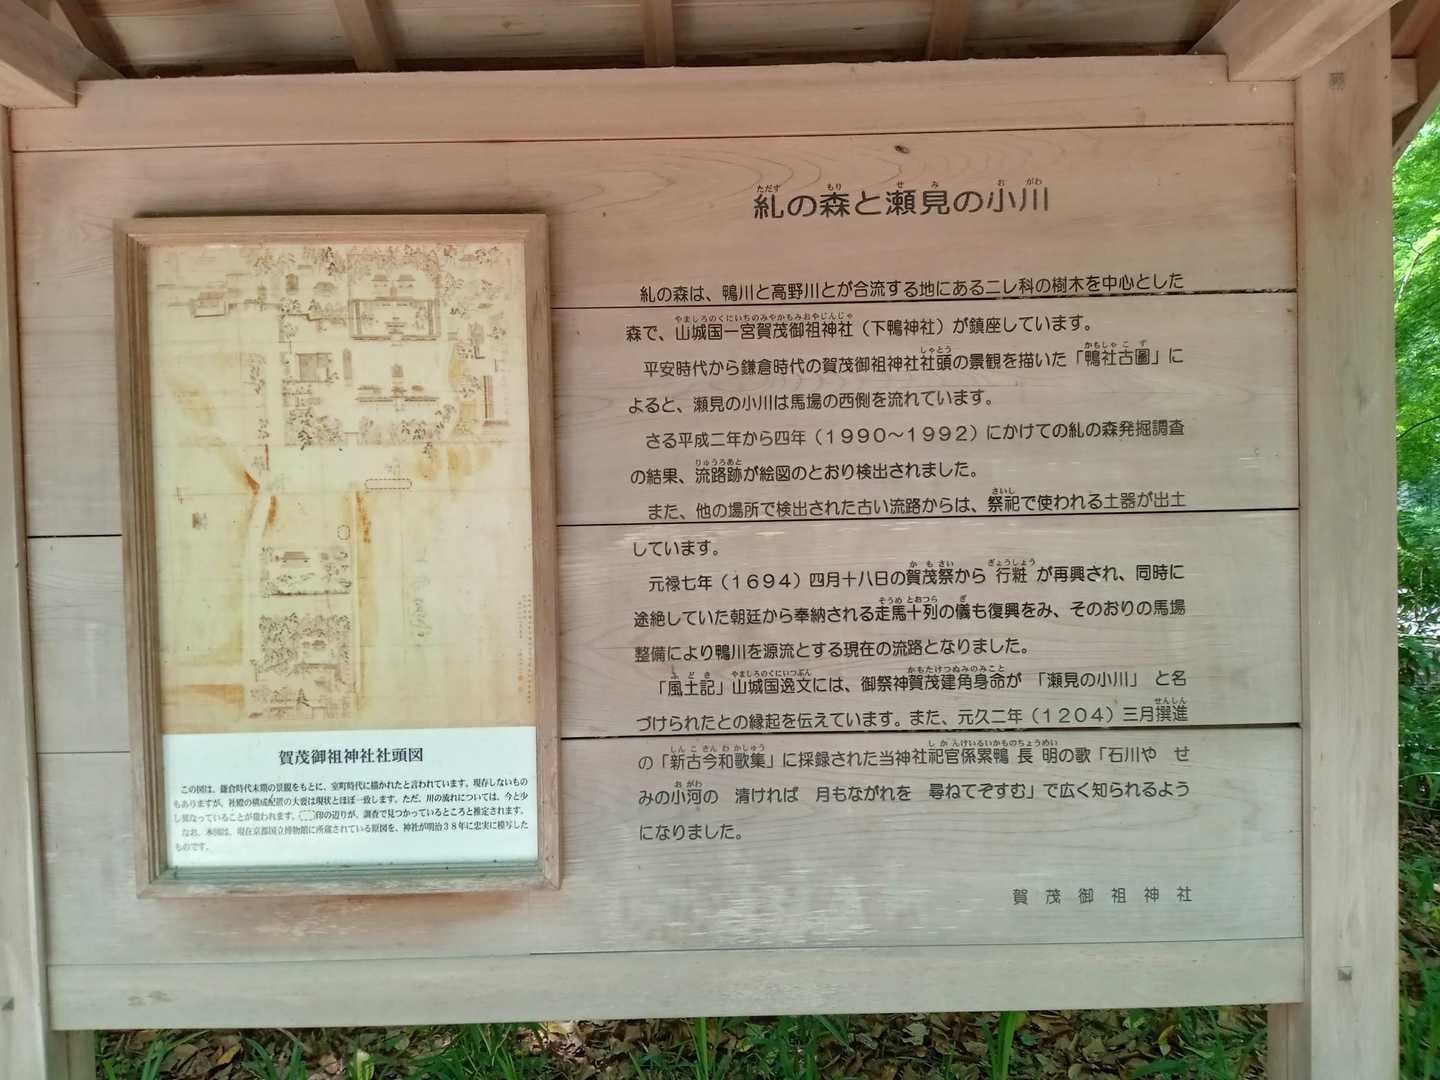 糺の森と瀬見の小川
糺の森は、鴨川と高野川とが合流する地にあるニレ科の樹木を中心とした
森で、山城国一宮賀茂御祖神社（下鴨神社）が鎮座しています。
平安時代から鎌倉時代の賀茂御祖神社社頭の景観を描いた「鴨社古圖」に
よると、瀬見の小川は馬場の西側を流れています。
さる平成二年から四年（１９９０～１９９２）にかけての糺の森発掘調査
の結果、流路跡が絵図のとおり検出されました。
また、他の場所で検出された古い流路からは、祭祀で使われる土器が出土
しています。
元禄七年（１６９４）四月十八日の賀茂祭から行粧が再興され、同時に
途絶していた朝廷から奉納される走馬十列の儀も復興をみ、そのおりの馬場
整備により鴨川を源流とする現在の流路となりました。
「風土記」山城国逸文には、御祭神賀茂建角身命が「瀬見の小川」と名
づけられたとの縁起を伝えています。また、元久二年（１２０４）三月撰進
の「新古今和歌集」に採録された当神社祀官係累鴨長明の歌「石川や　せ
みの小河の　清ければ　月もながれを　尋ねてぞすむ」で広く知られるよう
になりました。
賀茂御祖神社
賀茂御祖神社社頭図
この図は、鎌倉時代末期の景観をもとに、室町時代に描かれたと言われています。現存しないもの
もありますが、社殿の構成配置の大要は現状とほぼ一致します。ただ、川の流れについては、今と少
し異なっていることが窺われます。印の辺りが、調査で見つかっているところと推定されます。
なお、本図は、現在京都国立博物館に所蔵されている原図を、神社が明治３８年に忠実に模写した
ものです。